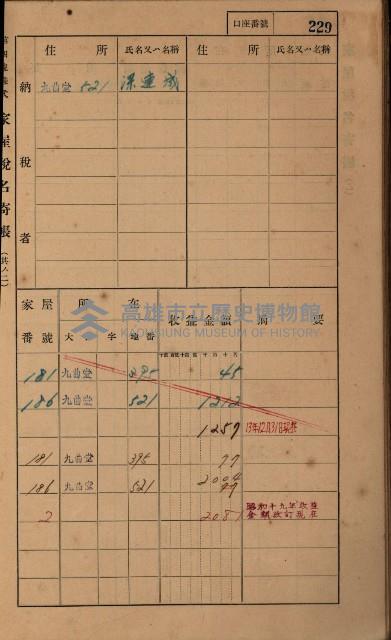 口座番號 229
家屋稅名寄帳 (共ノ二)
住所 氏名又ハ名稱 住所 氏名又ハ名稱
納稅者
九曲堂 521
家屋番號 所在 收益金額 摘要
大字 字 地番
高雄市立歷史博物館
KAOHSIUNG MUSEUM OF HISTORY
181 九曲堂 395 45
186 九曲堂 521 1212
1257 13年12月31日現在
181 九曲堂 395 77
186 九曲堂 521 2004
77
2 2081 昭和十九年收益
金額改訂現在